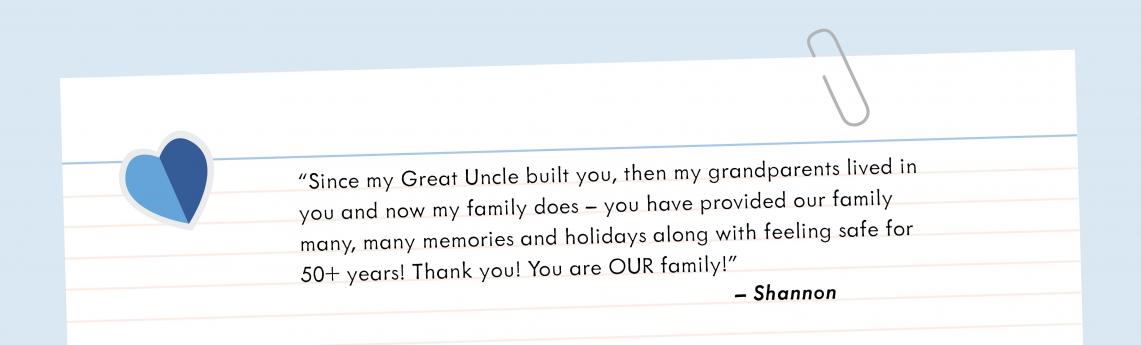 “Since my Great Uncle built you, then my grandparents lived in
you and now my family does – you have provided our family
many, many memories and holidays along with feeling safe for
50+ years! Thank you! You are OUR family!”
– Shannon